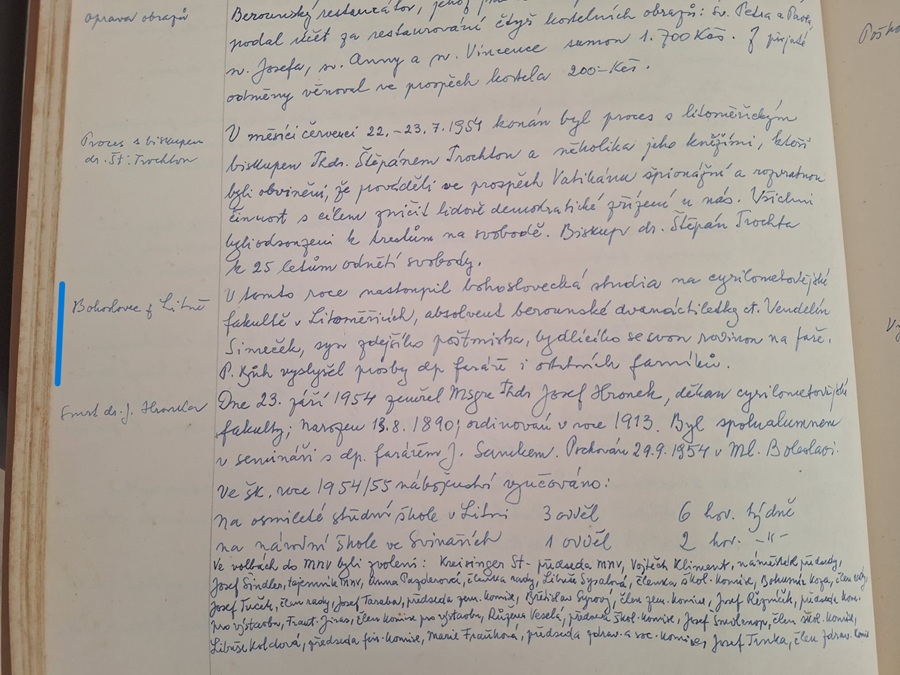 oprava obrazů
Berounský restaurátor,
podal účet za restaurování čtyř kostelních obrazů: sv. Petra a Pavla,
sv. Josefa, sv. Anny a sv. Vincence sumou 1.700 Kčs. Z přijaté
odměny věnoval ve prospěch kostela 200- Kčs.
Proces s biskupem
dr. Št. Trochtou
V měsíci červenci 22.-23.7.1954 konán byl proces s litoměřickým
biskupem Thdr. Štěpánem Trochtou a několika jeho kněžími, kteří
byli obviněni, že prováděli ve prospěch Vatikánu špionážní a rozvratnou
činnost s cílem zničit lidově demokratické zřízení u nás. Všichni
byli odsouzeni k trestům na svobodě. Biskup dr. Štěpán Trochta
k 25 letům odnětí svobody.
Bohoslovec z Litně
V tomto roce nastoupil bohoslovecká studia na cyrilometodějské
fakultě v Litoměřicích, absolvent berounské dvanáctiletky ct. Vendelín
Šimeček, syn zdejšího poštmistra, bydlícího se svou rodinou na faře.
P. Bůh vyslyšel prosby dp. faráře i ostatních farníků.
Úmrtí dr. J. Hronka
Dne 23. září 1954 zemřel Msgre Thdr Josef Hronek, děkan cyrilometodějské
fakulty; narozen 13.8.1890, ordinován v roce 1913. Byl spolualumnem
v semináři s dp. farářem J. Pochován 29.9.1954 v Ml. Boleslavi.
Ve šk. roce 1954/55 náboženství vyučováno:
Na osmileté střední škole v Litni 3 odděl 6 hov. týdně
na národní škole ve Svinařích 1 odděl 2 hov. -"-
Ve volbách do MNV byli zvoleni: Kreisinger St- předseda MNV, Vojtěch Kliment, náměstek předsedy,
Josef Šindler, tajemník MNV, Anna Pazderová, členka rady, Libuše Sysalová, členka škol. komise, Bohumil Koza, člen rady,
Josef Tuček, člen rady, Josef Taraba, předseda zem. komise, Břetislav Syrový, člen zem. komise, Josef Řezníček, předseda kom.
pro výstavbu, Frant. Jiras, člen komise pro výstavbu, Růžena Veselá, předseda škol. komise, Josef Smolenop, člen škol. komise,
Libuše Koldová, předseda fin. komise, Marie Fraňková, předseda zdrav. a soc. komise, Josef Trnka, člen zdrav. komise